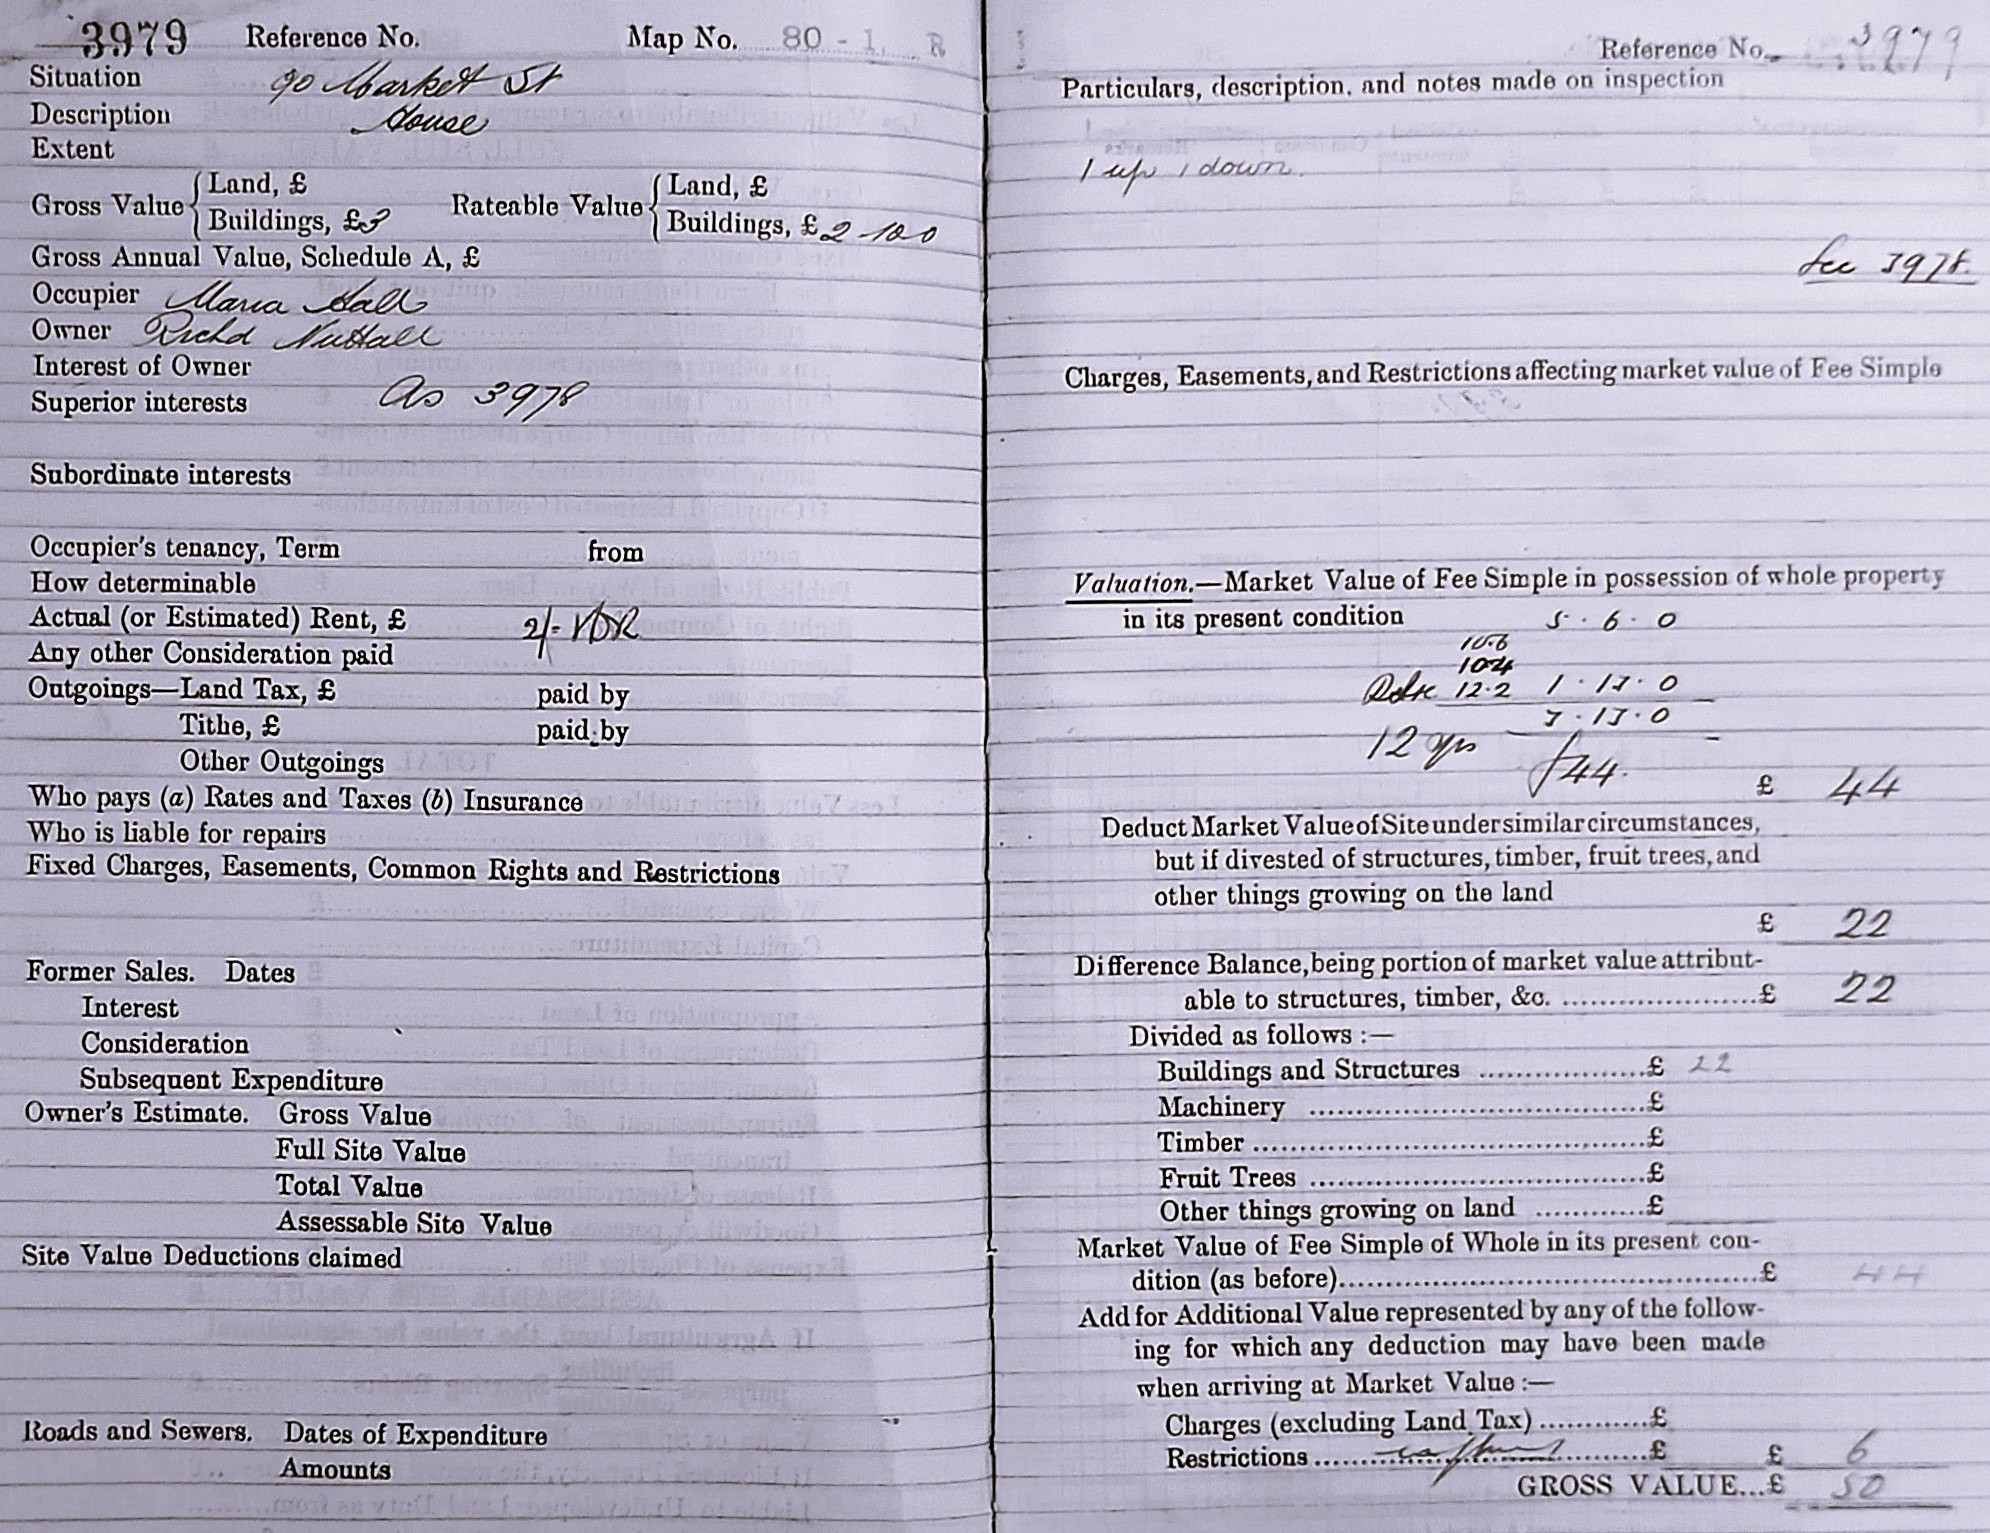 3979 Reference No. Map No. 80 - 1. R
Situation 90 Market St
Description House
Extent
Gross Value { Land, £
Buildings, £3
Rateable Value { Land, £
Buildings, £ 2-10-0
Gross Annual Value, Schedule A, £
Occupier Maria Hall
Owner Richd Nuttall
Interest of Owner
Superior interests As 3978
Subordinate interests
Occupier's tenancy, Term from
How determinable
Actual (or Estimated) Rent, £ 2/-
Any other Consideration paid
Outgoings—Land Tax, £ paid by
Tithe, £ paid by
Other Outgoings
Who pays (a) Rates and Taxes (b) Insurance
Who is liable for repairs
Fixed Charges, Easements, Common Rights and Restrictions
Former Sales. Dates
Interest
Consideration
Subsequent Expenditure
Owner's Estimate. Gross Value
Full Site Value
Total Value
Assessable Site Value
Site Value Deductions claimed
Roads and Sewers. Dates of Expenditure
Amounts
Reference No. 3979
Particulars, description, and notes made on inspection
1 up 1 down.
See 3978.
Charges, Easements, and Restrictions affecting market value of Fee Simple
Valuation.—Market Value of Fee Simple in possession of whole property
in its present condition 5 . 6 . 0
10.6
10.4
12.2 1 . 13 . 0
3 . 13 . 0
12 yrs £44.
£ 44
Deduct Market Value of Site under similar circumstances,
but if divested of structures, timber, fruit trees, and
other things growing on the land
£ 22
Difference Balance, being portion of market value attribut-
able to structures, timber, &c. ........................£ 22
Divided as follows :—
Buildings and Structures ...................£ 22
Machinery ......................................£
Timber ............................................£
Fruit Trees ......................................£
Other things growing on land .............£
Market Value of Fee Simple of Whole in its present con-
dition (as before)................................................£ 44
Add for Additional Value represented by any of the follow-
ing for which any deduction may have been made
when arriving at Market Value :—
Charges (excluding Land Tax) .............£
Restrictions .....................................£ £ 6
GROSS VALUE...£ 50